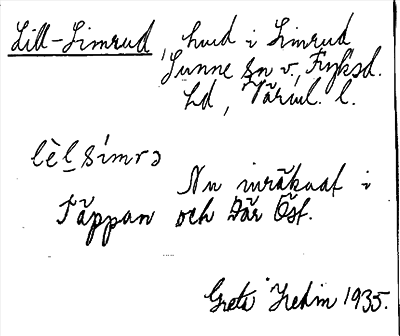 Lill-Simrud, hmd i Simrud
Sunne sn v., Fryksd.
hd, Värml. l.
lèl símrɔ
Nu inräknat i
Täppan och Där Öst.
Greta Hedin 1935.